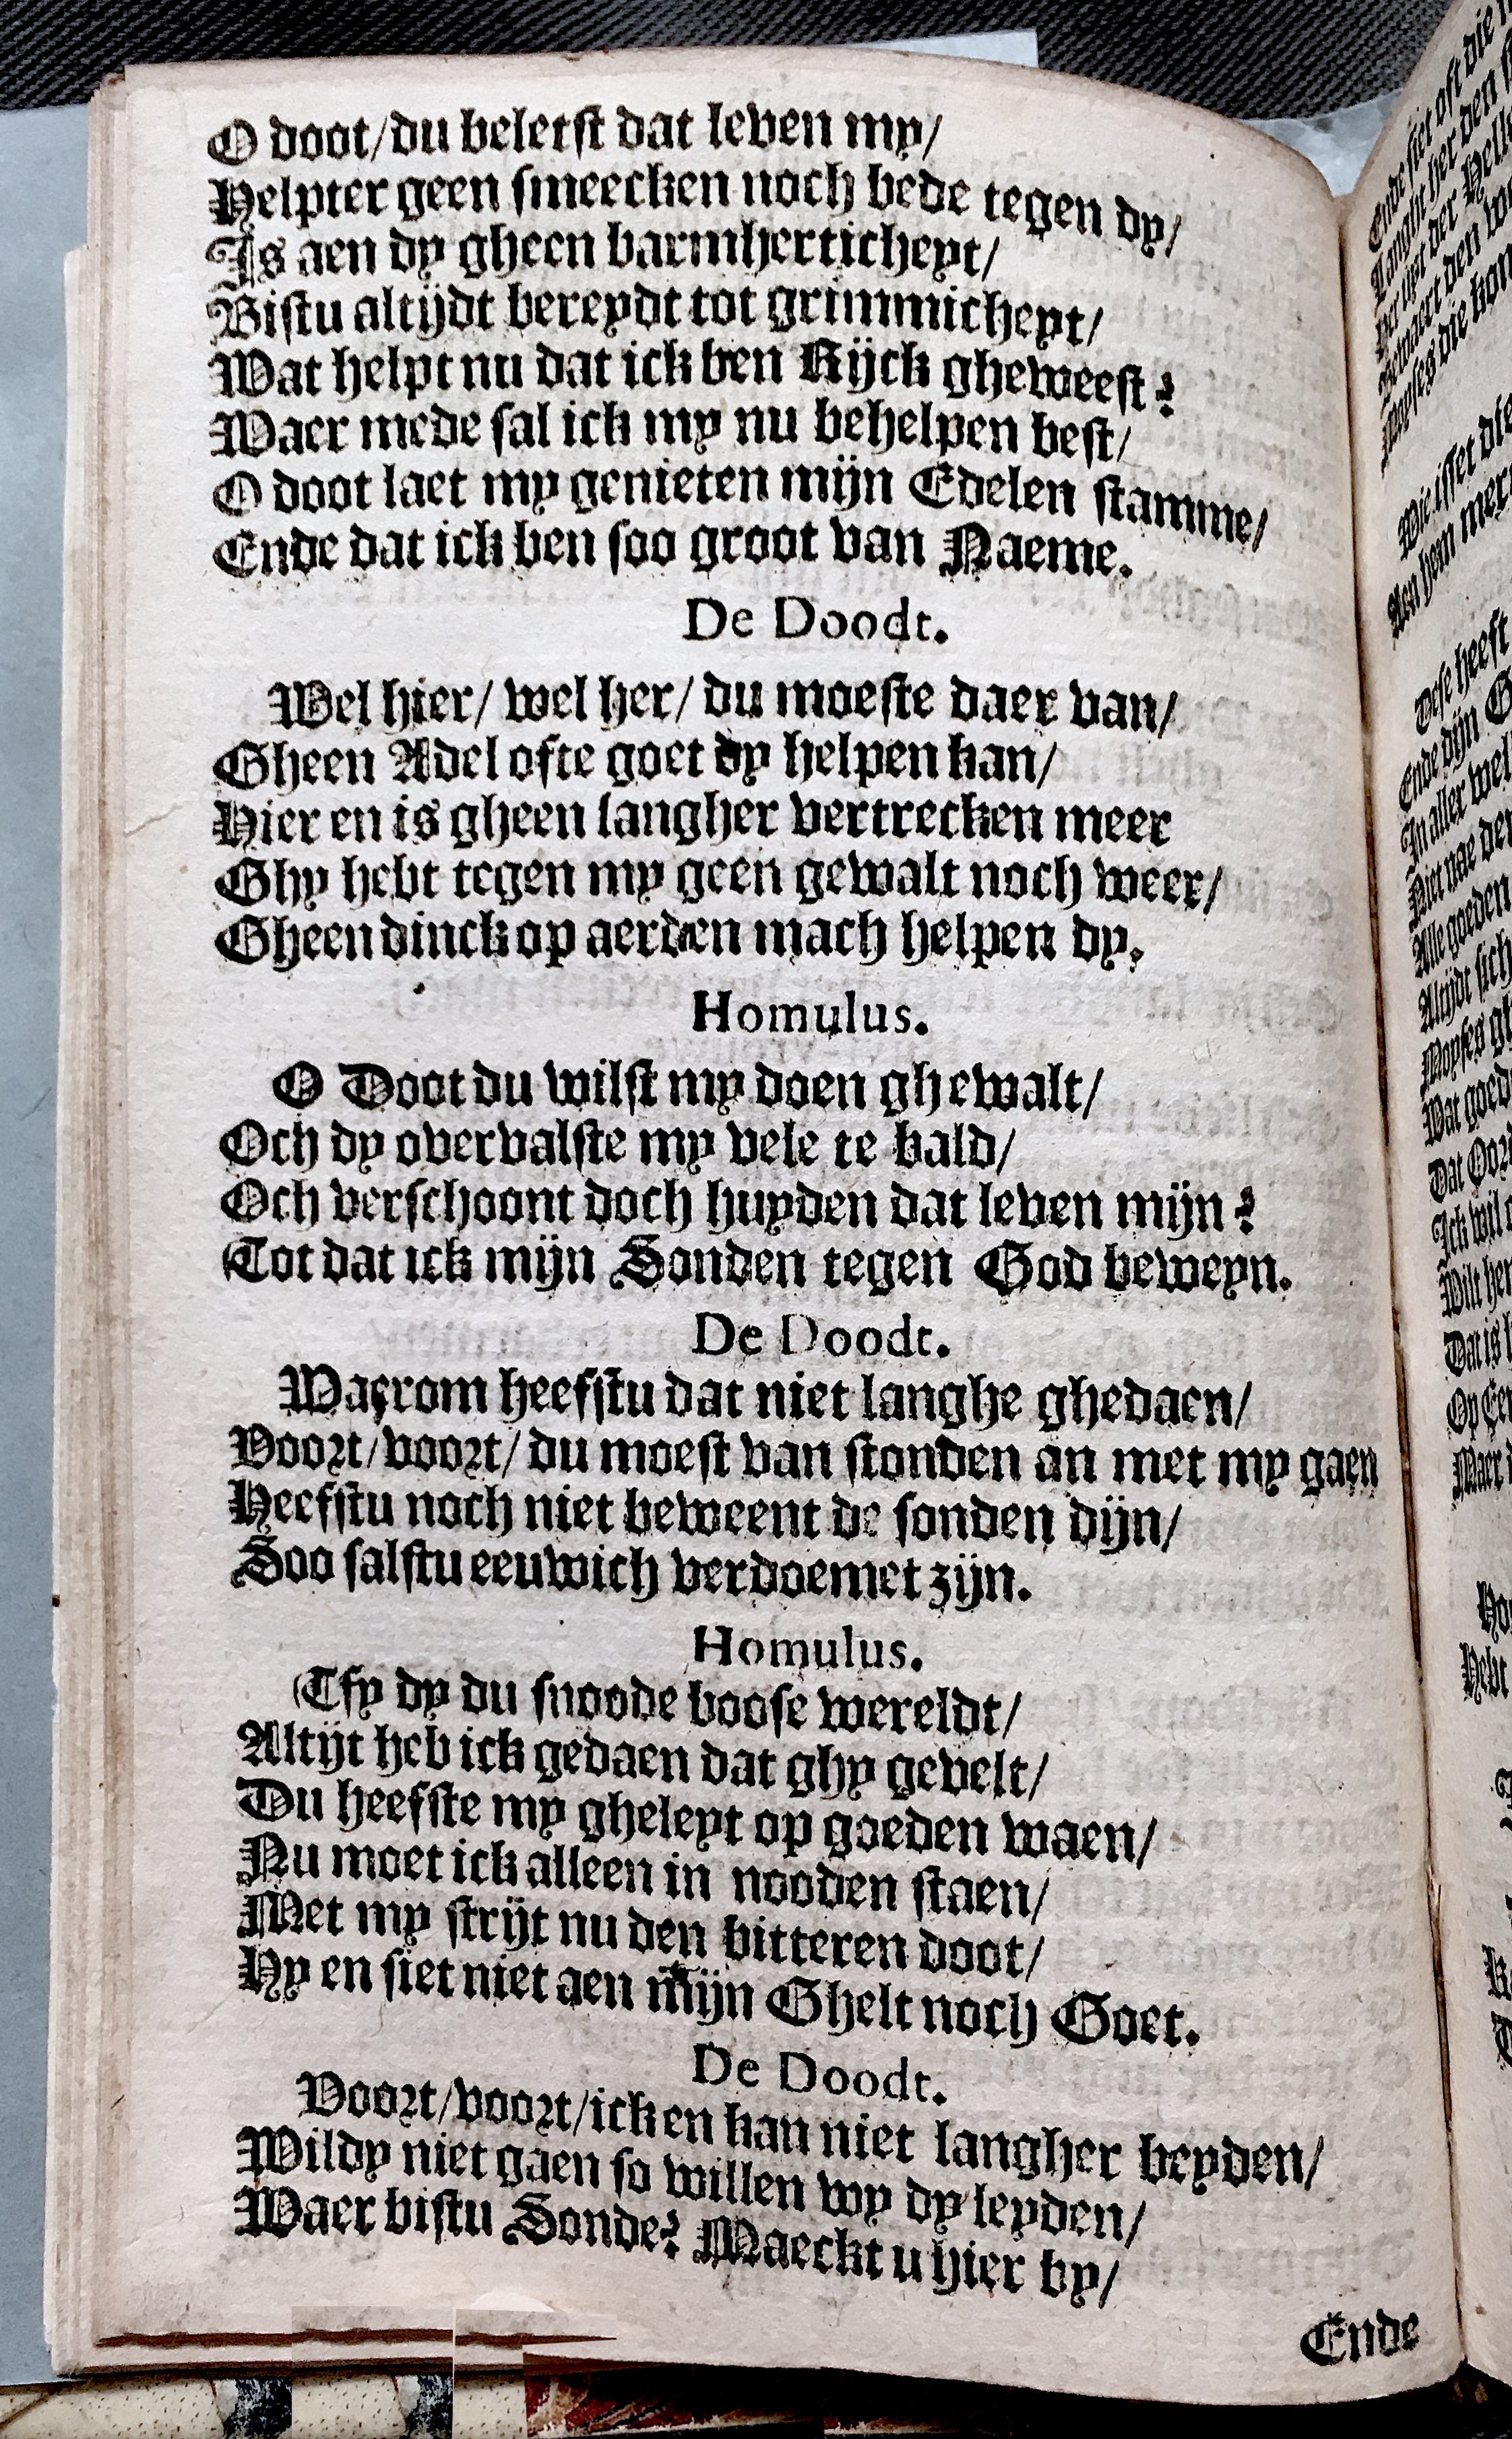 O doot/du beletst dat leven my/
Helpter geen smeecken noch bede tegen dy/
Is aen dy gheen barmherticheyt/
Bistu altijdt bereydt tot grimmicheyt/
Wat helpt nu dat ick ben Rijck gheweest?
Waer mede sal ick my nu behelpen best/
O doot laet my genieten mijn Edelen stamme/
Ende dat ick ben soo groot van Naeme.
De Doodt.
Wel hier/ wel her/ du moeste daer van/
Gheen Adel ofte goet dy helpen kan/
Hier en is gheen langher vertrecken meer
Ghy hebt tegen my geen gewalt noch weer/
Gheen dinck op aerden mach helpen dy.
Homulus.
O Doot du wilst my doen ghewalt/
Och dy overvalste my vele te bald/
Och verschoont doch huyden dat leven mijn?
Tot dat ick mijn Sonden tegen God beweyn.
De Doodt.
Waerom heefstu dat niet langhe ghedaen/
Voort/voort/ du moest van stonden an met my gaen
Heefstu noch niet beweent de sonden dijn/
Soo salstu eeuwich verdoemet zijn.
Homulus.
Tfy dy du snoode boose wereldt/
Altijt heb ick gedaen dat ghy gevelt/
Du heefste my gheleyt op goeden waen/
Nu moet ick alleen in nooden staen/
Met my strijt nu den bitteren doot/
Hy en siet niet aen mijn Ghelt noch Goet.
De Doodt.
Voort/voort/ick en kan niet langher beyden/
Wildy niet gaen so willen wy dy leyden/
Waer bistu Sonde? Maeckt u hier by/
Ende